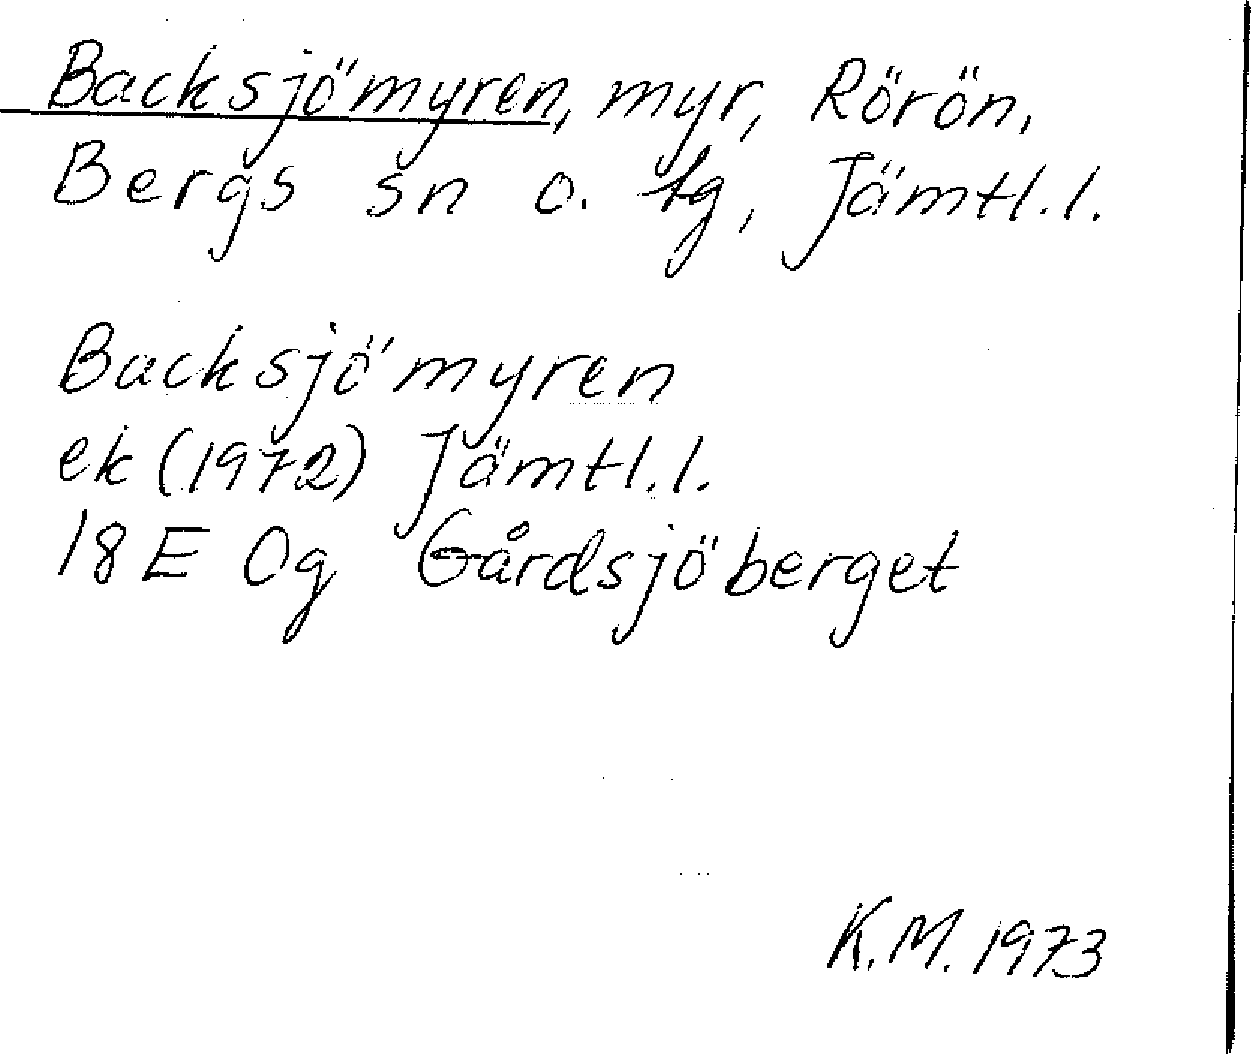 Backsjömyren, myr, Rörön,
Bergs sn o. tg, Jämtl.l.
Backsjömyren
ek (1972) Jämtl.l.
18E 0g Gårdsjöberget
K.M. 1973